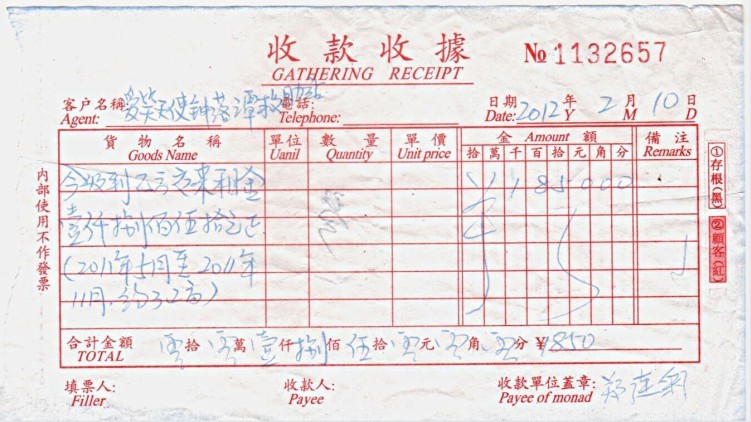 收款收據
GATHERING RECEIPT
№ 1132657
客户名稱 愛笑天使 落潭救助站 電話:
Agent: Telephone:
日期 2012 年 2 月 10 日
Date: Y M D
貨物名稱 單位 數量 單價 金 Amount 額 備注
Goods Name Uanil Quantity Unit price 拾 萬 千 百 拾 元 角 分 Remarks
今收到 租金 ¥ 1 8 5 0 0 0
壹仟捌佰伍拾元正
(2011年5月至2011年
11月,
合計金額 零拾 零萬 壹仟 捌佰 伍拾 零元 零角 零分 ¥1850
TOTAL
填票人: 收款人: 收款單位蓋章: 郑
Filler Payee Payee of monad
内部使用不作發票
①存根(黑)
②顧客(紅)